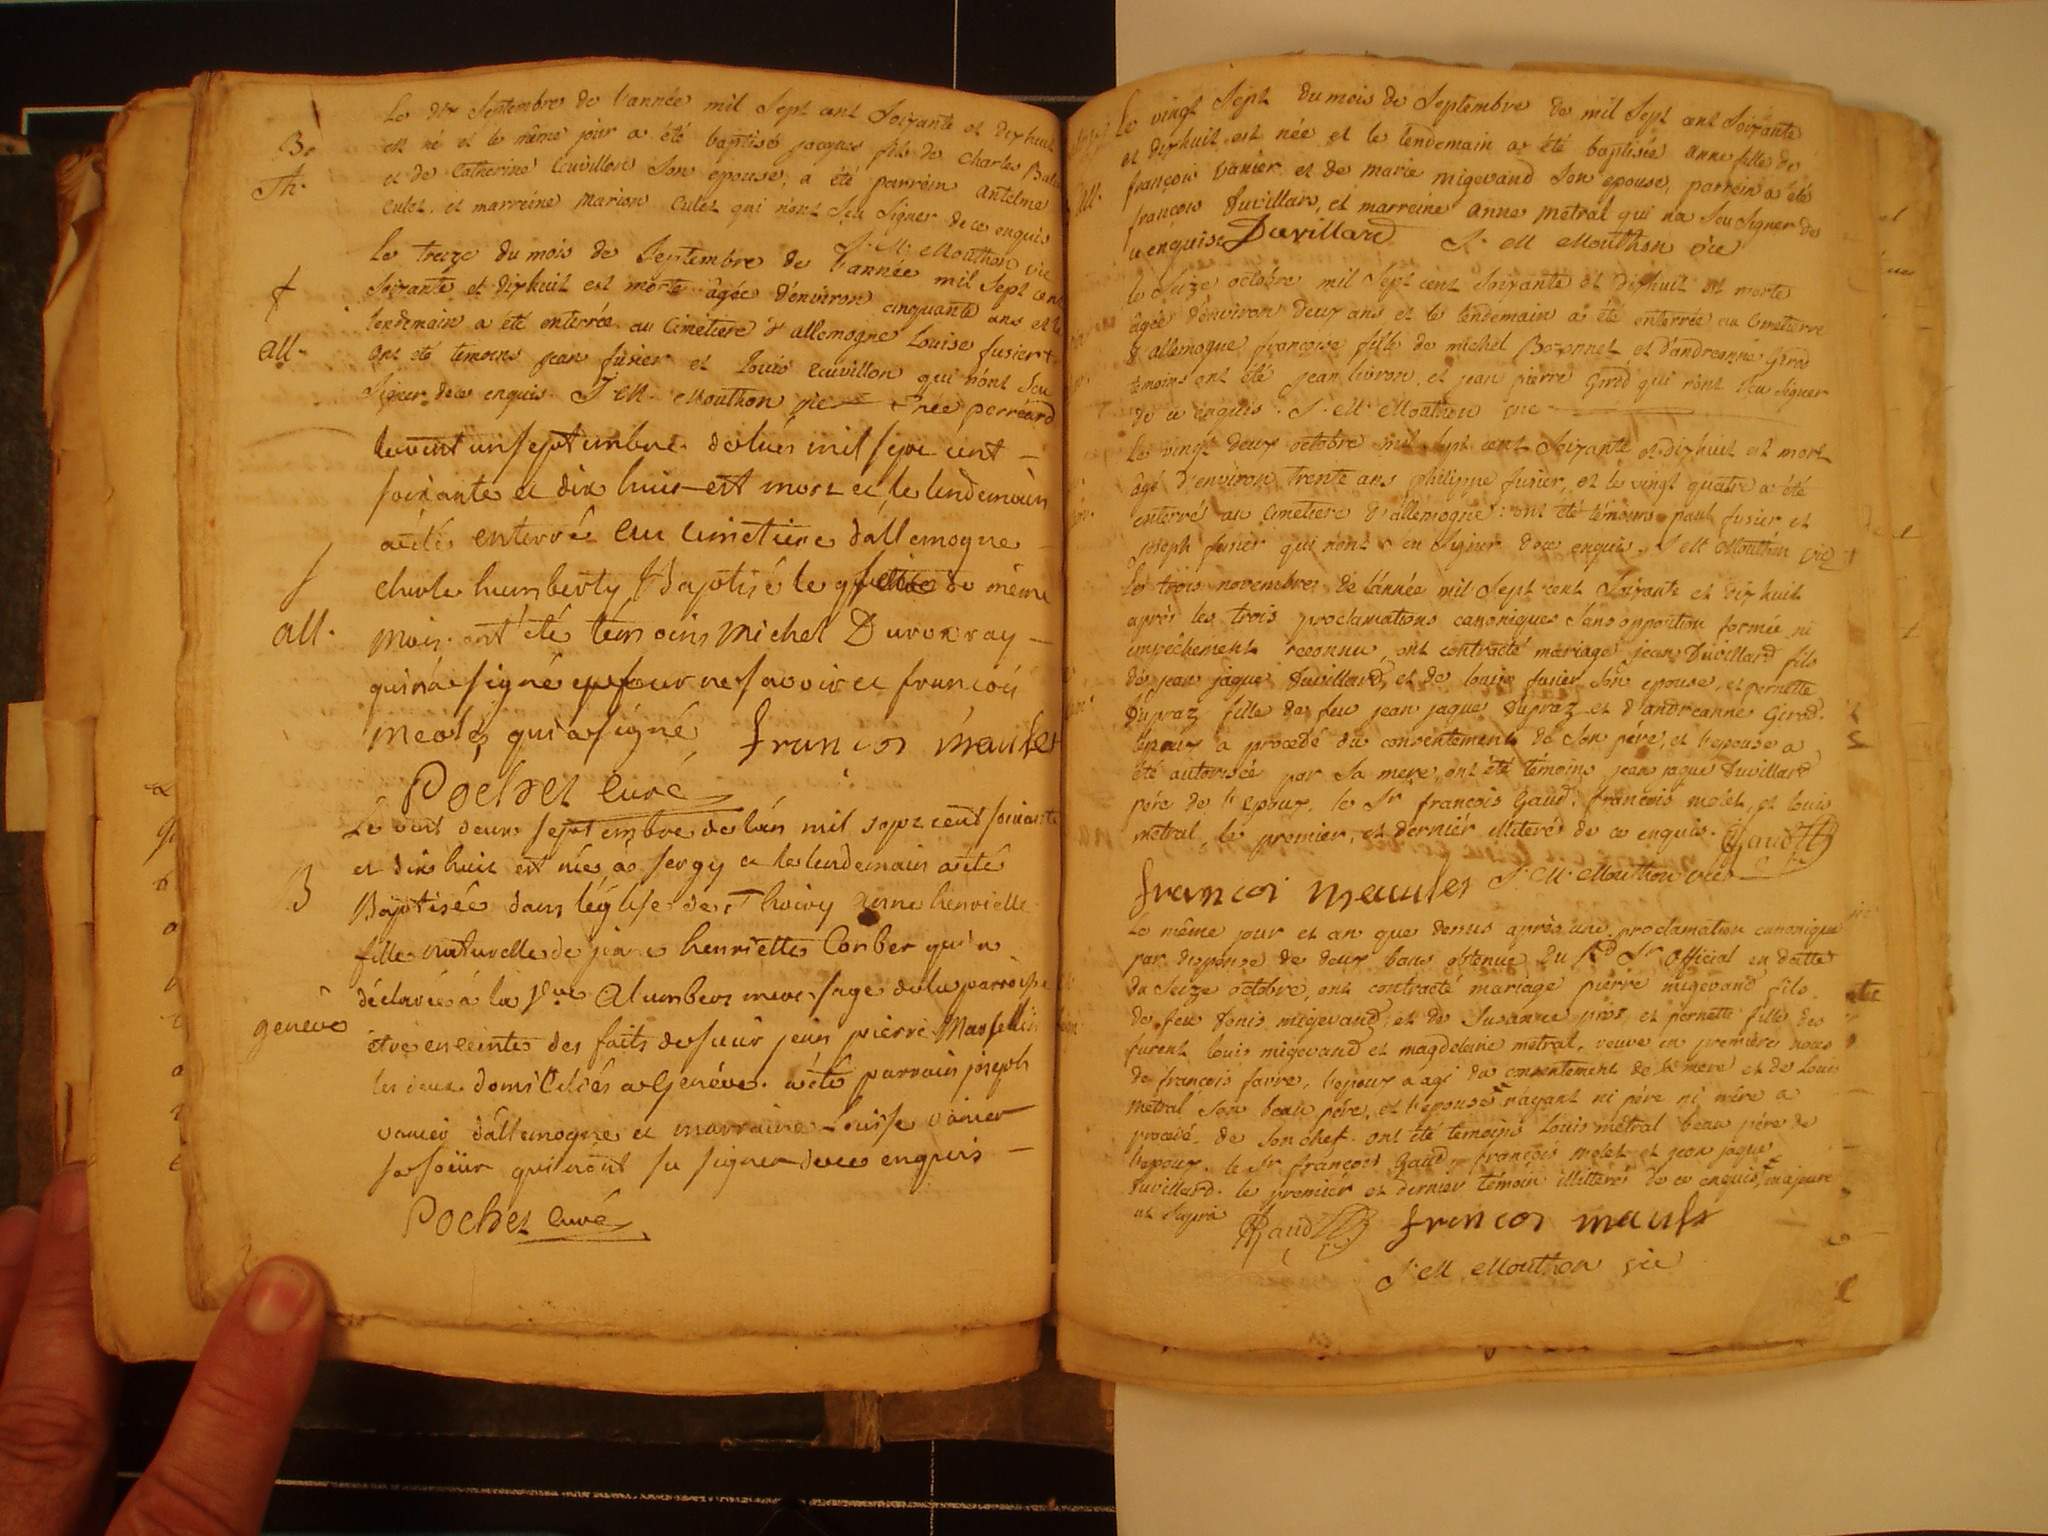 Le dix Septembre de l'année mil Sept cent Soixante et dixhuit
est né et le même jour a été baptisé jacques fils de Charles
B.
et de Catherine Cuvillon son epouse, a été parrein antelme
Th.
Culet, et marreine Marion Culet qui n'ont Seu Signer de ce enquis
J. M. Mouthon vic
Le treize du mois de Septembre de l'année mil Sept cent
Soixante et dixhuit est morte âgée d'environ cinquante ans et le
†
lendemain a été enterrée au Cimetiere d'allemogne Louise fusier +
All.
ont été temoins jean fusier et Louis Cuvillon qui n'ont Seu
Signer de ce enquis. J. M. Mouthon vic + née perréard
le vent un septembre de l'an mil sept cent
soixante et dix huit est mort et le lendemain
a été enterré au cimetiere d'allemogne
Charle humberty Baptisé le 9 du même
f
All.
mois. ont été témoins Michel Duronray
qui n'a signé pour ne savoir et françois
meolé, qui a signé françoi maule
Pochet curé
Le vent deux septembre de l'an mil sept cent soixante
et dix huit est née à sergy et le lendemain a été
B
Baptisée dans l'église de Thoiry henriette
fille naturelle de henriette Corber qui a
déclarée à la Alumbert mere sage de la parroisse
geneve
être enceinte des faits de sieur jean pierre Marsellin
les deux domiciliés a Genéve. a été parrain joseph
vanier d'allemogne et marraine Louise vanier
sa soeur qui n'ont su signer de ce enquis
Pochet curé
Le vingt Sept du mois de Septembre de mil Sept cent Soixante
et dixhuit est née et le lendemain a été baptisée anne fille de
françois vanier et de marie migevand Son epouse, parrein a été
All.
françois Duvillard, et marreine anne metral qui n'a Seu Signer de
ce enquise Duvillard J. M Mouthon vic
le Seize octobre mil Sept cent Soixante et dixhuit est morte
âgée d'environ deux ans et le lendemain a été enterrée au Cimetierre
d'allemogne françoise fille de michel Bozonnet et d'andreanne Girod
temoins ont été jean livron, et jean pierre Girod qui n'ont Seu Signer
de ce enquis. J. M. Mouthon vic
Le vingt deux octobre mil Sept cent Soixante et dixhuit est mort
âgé d'environ trente ans philippe fusier, et le vingt quatre a été
enterré au Cimetiere d'allemogne: ont été témoins paul fusier et
joseph fusier qui n'ont Seu Signer de ce enquis. J M Mouthon vic
Le trois novembre de l'année mil Sept cent Soixante et dixhuit
après les trois proclamations canoniques Sans opposition formée ni
empêchement reconnu, ont contracté mariage jean Duvillard fils
de jean jaque Duvillard, et de louise fusier Son epouse, et pernette
Dupraz fille de feu jean jaque Dupraz et d'andreanne Girod.
l'epoux a procedé du consentement de Son père, et l'epouse a
été autorisée par Sa mere, ont été témoins jean jaque Duvillard
pére de l'epoux, le Sr françois Gaud, françois molet, et louis
metral, le premier, et derniér illiteré de ce enquis. Gaud
françoi maules J. M. Mouthon vic
Le même jour et an que dessus après une proclamation canonique
par dispense de deux bans obtenue du Rd Sr Official en datte
du Seize octobre, ont contracté mariage piérre migevand fils
de feu Denis migevand, et de Susanne pros, et pernette fille des
furent louis migevand et magdeleine metral, veuve en première noces
de françois favre, l'epoux a agi du consentement de Sa mere et de Louis
metral Son beau pére, et l'epouse n'ayant ni pére ni mére a
procédé de Son chef. ont été temoins Louis metral beau pére de
l'epoux. le Sr françois Gaud, françois molet et jean jaque
Duvillard. le premiér et dernier témoin illitteré de ce enquis, majeure
ut Supra Gaud françoi mauls
J. M. Mouthon vic